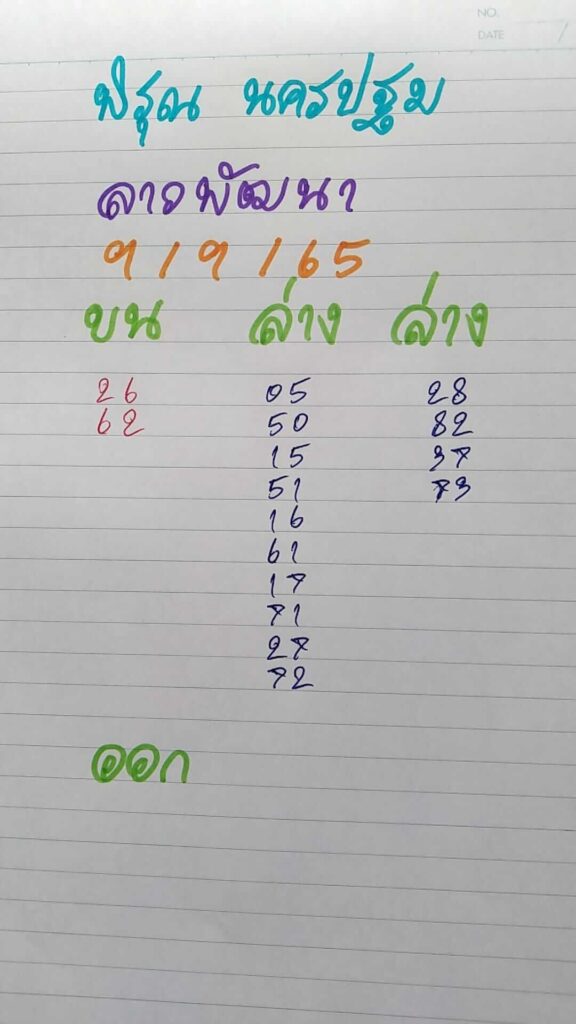 NO.
DATE /
พิรุณ นครปฐม
ลาวพัฒนา
9/9/65
บน ล่าง ล่าง
26 05 28
62 50 82
15 37
51 73
16
61
17
71
27
72
ออก